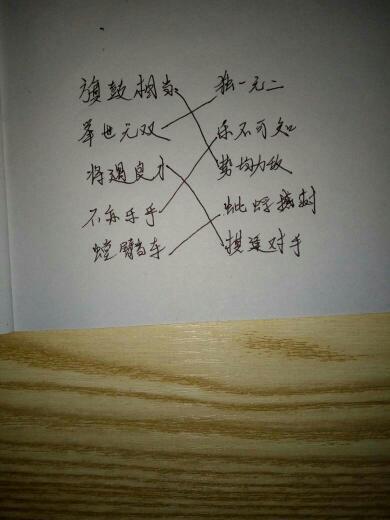 旗鼓相当 独一无二
举世无双 乐不可知
将遇良才 势均力敌
不亦乐乎 蚍蜉撼树
螳臂当车 棋逢对手